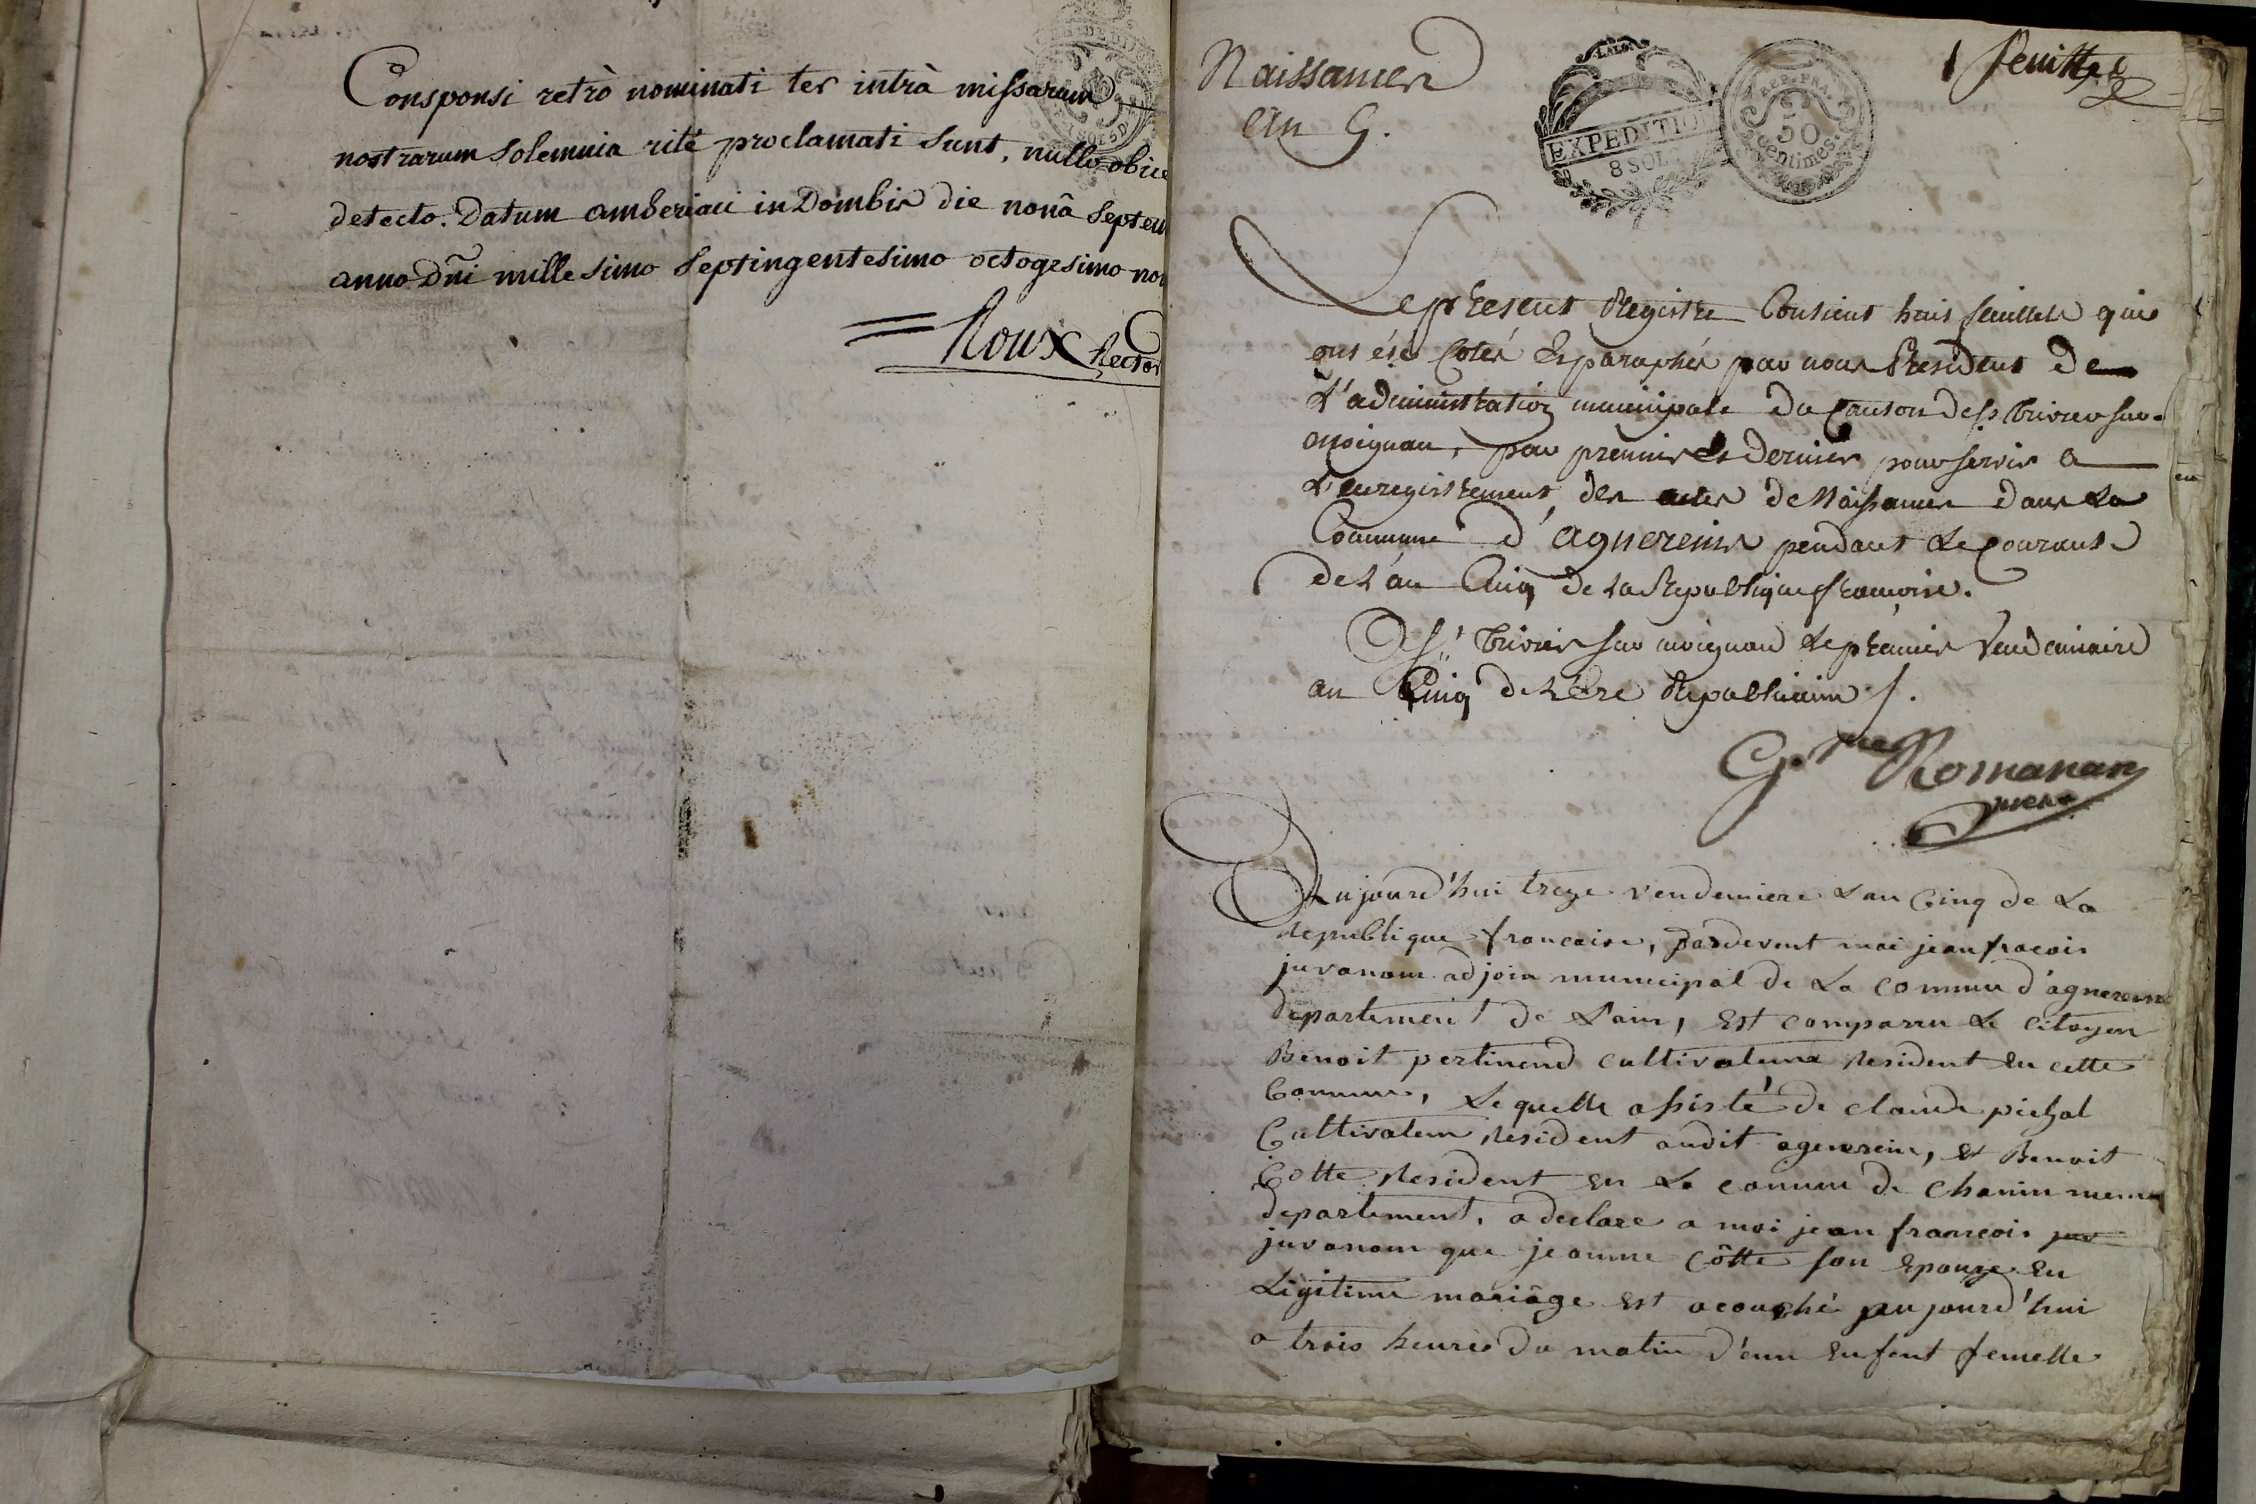 Consponsi retrò nominati ter intrà missarum
nostrarum solemnia ritè proclamati sunt, nullo obice
detecto. Datum amberiaci in Dombis die nonâ Septem
anno Dñi millesimo Septingentesimo octogesimo non
Roux Rector
Naissances
An 5.
EXPEDITION
8 SOLS
REP. FRA.
50
centimes.
1 feuillet
Le present Registre Contient huit feuillets qui
ont été Cotés et paraphés par nous President de
L'administration municipale du Canton de St. Trivier sur
moignan, par premier et dernier pour servir a
L'enregistrement des actes de Naissances dans La
Commune d'agnereins pendant Le Courant
de L'an Cinq de La Republique francoise.
A St. Trivier sur moignan Le premier Vendemiaire
an Cinq de L'Ere Republicaine /.
Romanan
Aujourd'hui treze vendemiere L'an Cinq de La
Republique francaise, pardevent moi jean fracois
juvanom adjoin municipal de La commu d'agnereins
departement de L'ain, est comparru Le citoyen
Benoit pertinend cultivateur Resident en cette
Commune, Le quelle assisté de claude pichal
Cultivateur Resident audit agenerein, et Benoit
Cotte Resident en La comune de Chanin meme
departement, a declare a moi jean francois
juvanom que jeanne Côtte son Epouze en
Legitime mariâge est acouché aujourd'hui
a trois heures du matin d'enn enfent femelle